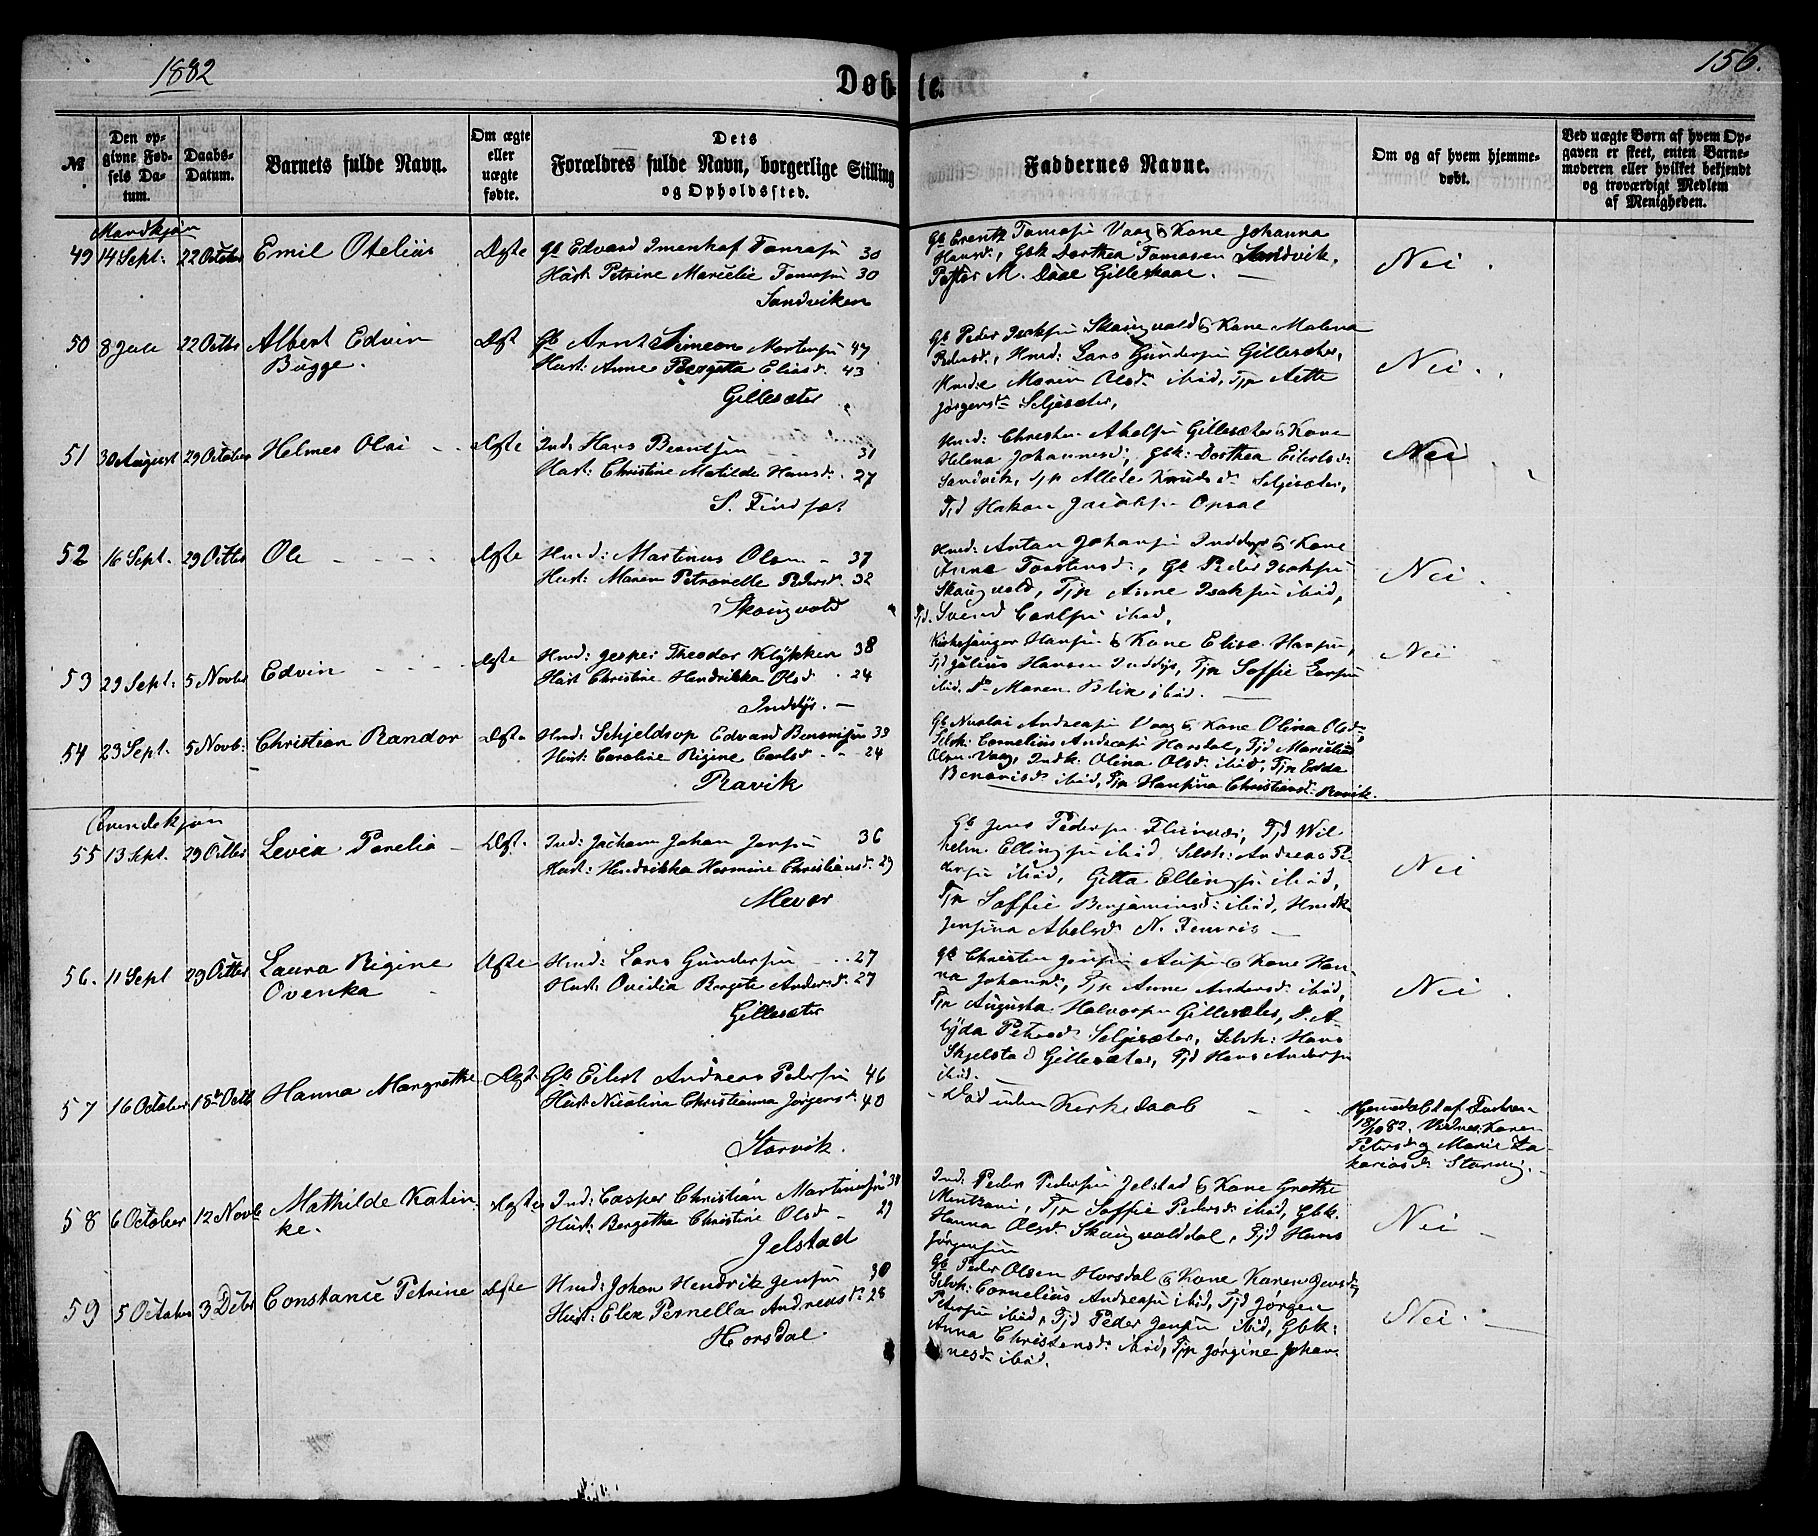 1882
156.
Døbte.
№
Den opgivne Fødsels Datum.
Daabs-Datum.
Barnets fulde Navn.
Om ægte eller uægte fødte.
Dets Forældres fulde Navn, borgerlige Stilling og Opholdssted.
Faddernes Navne.
Om og af hvem hjemmedøbt.
Ved uægte Børn af hvem Opgaven er skeet, enten Barnemoderen eller hvilket bekjendt og troværdigt Medlem af Menigheden.
Mandkjøn
49 14 Sept. 22 October Emil Otelius Ægte Gb Edvard Tomasen 30
Hust. Petrine Marcelie Tomasen 30
Sandviken
Tomasen Vaag & Kone Johanna
Hansd., Gbk Dorthea Tomasen Sandvik,
Gilleskaal.
Nei.
50 8 Juli 22 Octbr Albert Edvin
Bugge.
Ægt Gb Arnt Simeon Mortensen 47
Hust: Anne Bergitta Eliasd. 43
Gillesæter
Gb Peder Isaksen Skaugvold & Kone Malena
Pedersd., Hmd: Lars Gundersen Gillesæter,
Maren Olsd. ibid, Tjp
Jørgensd. Seljesæter,
Nei.
51 30 August 29 October Helmer Olai Ægte Ind: Hans Berntsen 31
Hust: Christine Matilde Hansd. 27
S. Findset
Hmd: Christen Abelsen Gillesæter & Kone
Helena Johannesd., Gbk: Dorthea Eilertsd.
Sandvik, Tjp Knudsd. Seljesæter,
Tjd Hakon Jacobsen Opsal
Nei
52 16 Sept. 29 Octbr Ole Ægte Hmd: Martinus Olsen 37
Hust: Maren Petronelle Pedersd. 32
Skaugvold
Hmd: Anton Johansen Inddyr & Kone
Anna Torstensd., Gb Peder Isaksen
Skaugvold, Tjp Anne Isaksen ibid,
Tjd. Svend Carlsen ibid.
Nei
53 29 Sept. 5 Novbr Edvin Ægte Hmd: Jesper Theodor Klykken 38
Hust Christine Hendrikka Olsd. 24
Inddyr.
Kirkesanger Hansen & Kone Elise Hansen,
Tjd Julius Hansen Inddyr, Tjp Soffie Larsen
ibid. Do Maren Blix ibid.
Nei
54 23 Sept. 5 Novb: Christian Randor Ægte Hmd: Schjeldsop Edvard Benonisen 33
Hust: Caroline Rigine Carlsd. 24
Ravik
Gb Nicolai Andreasen Vaag & Kone Olina Olsd.,
Selvh: Cornelius Andreasen Horsdal, Tjd
Olsen Vaag, Indk: Olina Olsd. ibid, Tjp
Benonisd. ibid, Tjp Hansina Christiansd. Ravik.
Qvindekjøn
55 13 Sept. 29 Octbr Levia Parelia Ægt. Ind: Jochum Johan Jensen 36
Hust: Hendrikka Hermine Christiansd. 29
Mevær
Gb Jens Pedersen Fleinvær, Tjd Wilhelm
Ellingsen ibid, Selvh: Andreas Pedersen
ibid, Gitta Ellingsen ibid,
Tjp Soffie Benjaminsd. ibid, Hmdk
Jensina Abelsd. N. Femris
Nei
56. 11 Sept 29 Octbr Laura Rigine
Ovenka
Ægte Hmd: Lars Gundersen 27
Hust: Ovidia Bergete Andersd. 27
Gillesæter
Gb Christen Jensen & Kone Hanna
Johansd., Tjp Anne Andersd. ibid,
Tjp Augusta Halvorsen Gillesæter,
Petersd. Seljesæter, Selvh: Hans
Skjelstad Gillesæter, Tjd Hans Andersen
ibid.
Nei.
57 16 October 18 Octb Hanna Margrethe Ægt. Gb Eilert Andreas Pedersen 46
Hust Nicolina Christianna Jørgensd. 40
Storvik.
Død uden Kirkedaab
Hjemmedøbt af Faderen
18/10 82. Vidner: Karen
Petersd. og Marie Zakariasd. Storvig.
58 6 October 12 Novb Mathilde Katinke.
Ægte Ind: Casper Christian Martinusen 38
Hust: Bergethe Christine Olsd. 29
Jelstad
Ind: Peder Pedersen Jelstad & Kone Grethe
Tjp Soffie Pedersd. ibid, Gbk.
Hanna Olsd. Skaugvolddal, Tjd Hans
Jørgensen
Nei
59 5 October 3 Debr Constance Petrine Ægte Hmd: Johan Hendrik Jensen 30
Hust: Elen Pernella Andreasd. 28
Horsdal
Gb Peder Olsen Horsdal & Kone Karen Jensd.,
Selvh: Cornelius Andreasen ibid, Tjd Jørgen
Petersen ibid, Tjd Peder Jensen ibid, Gbk:
Anna Christensd. ibid, Tjp Jørgine Johannesd.
ibid.
Nei.